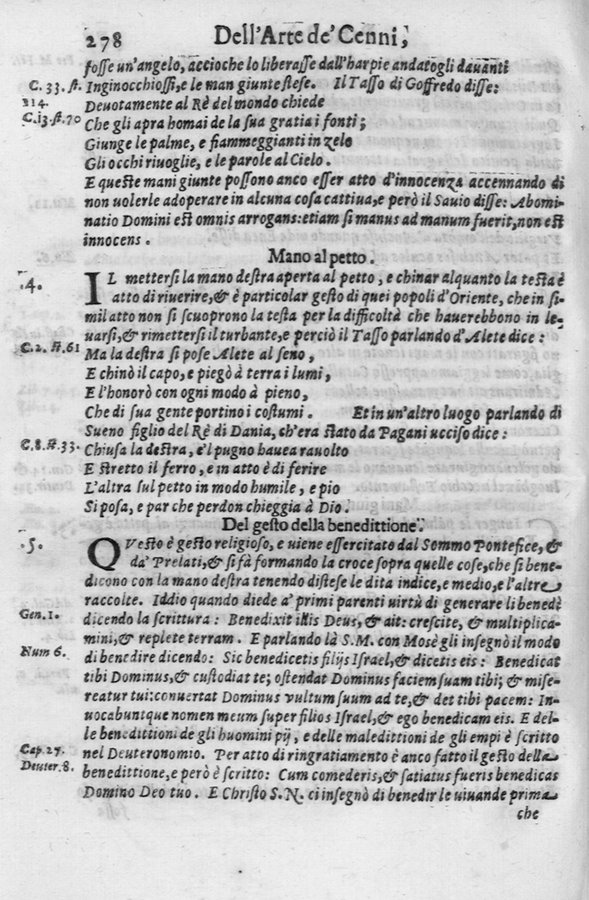 278 Dell'Arte de' Cenni,
fosse un'angelo, accioche lo liberasse dall'harpie andatogli davanti
C. 33. st. Inginocchiossi, e le man giunte stese. Il Tasso di Goffredo disse:
214. Deuotamente al Rè del mondo chiede
C. i3. st. 70 Che gli apra homai de la sua gratia i fonti;
Giunge le palme, e fiammeggianti in zelo
Gli occhi riuoglie, e le parole al Cielo.
E queste mani giunte possono anco esser atto d'innocenza accennando di
non uolerle adoperare in alcuna cosa cattiua, e però il Sauio disse: Abomi-
natio Domini est omnis arrogans: etiam si manus ad manum fuerit, non est
innocens.
Mano al petto.
.4. IL mettersi la mano destra aperta al petto, e chinar alquanto la testa è
atto di riuerire, & è particolar gesto di quei popoli d'Oriente, che in si-
mil atto non si scuoprono la testa per la difficoltà che hauerebbono in le-
uarsi, & rimettersi il turbante, e perciò il Tasso parlando d'Alete dice:
C. 2. st. 61 Ma la destra si pose Alete al seno,
E chinò il capo, e piegò à terra i lumi,
E l'honorò con ogni modo à pieno,
Che di sua gente portino i costumi. Et in un'altro luogo parlando di
Sueno figlio del Rè di Dania, ch'era stato da Pagani ucciso dice:
C. 8. st. 33. Chiusa la destra, e'l pugno hauea rauolto
E stretto il ferro, e in atto è di ferire
L'altra sul petto in modo humile, e pio
Si posa, e par che perdon chieggia à Dio.
Del gesto della benedittione.
.5. QVesto è gesto religioso, e uiene essercitato dal Sommo Pontefice, &
da' Prelati, & si fà formando la croce sopra quelle cose, che si bene-
dicono con la mano destra tenendo distese le dita indice, e medio, e l'altre
raccolte. Iddio quando diede a' primi parenti uirtù di generare li benedè
Gen. 1. dicendo la scrittura: Benedixit illis Deus, & ait: crescite, & multiplica-
mini, & replete terram. E parlando là S. M. con Mosè gli insegnò il modo
Num 6. di benedire dicendo: Sic benedicetis filijs Israel, & dicetis eis: Benedicat
tibi Dominus, & custodiat te; ostendat Dominus faciem suam tibi; & mise-
reatur tui: conuertat Dominus vultum suum ad te, & det tibi pacem: In-
uocabuntque nomen meum super filios Israel, & ego benedicam eis. E del-
le benedittioni de gli huomini pij, e delle maledittioni de gli empi è scritto
Cap. 27. nel Deuteronomio. Per atto di ringratiamento è anco fatto il gesto della
Deuter. 8. benedittione, e però è scritto: Cum comederis, & satiatus fueris benedicas
Domino Deo tuo. E Christo S. N. ci insegnò di benedir le uiuande prima
che